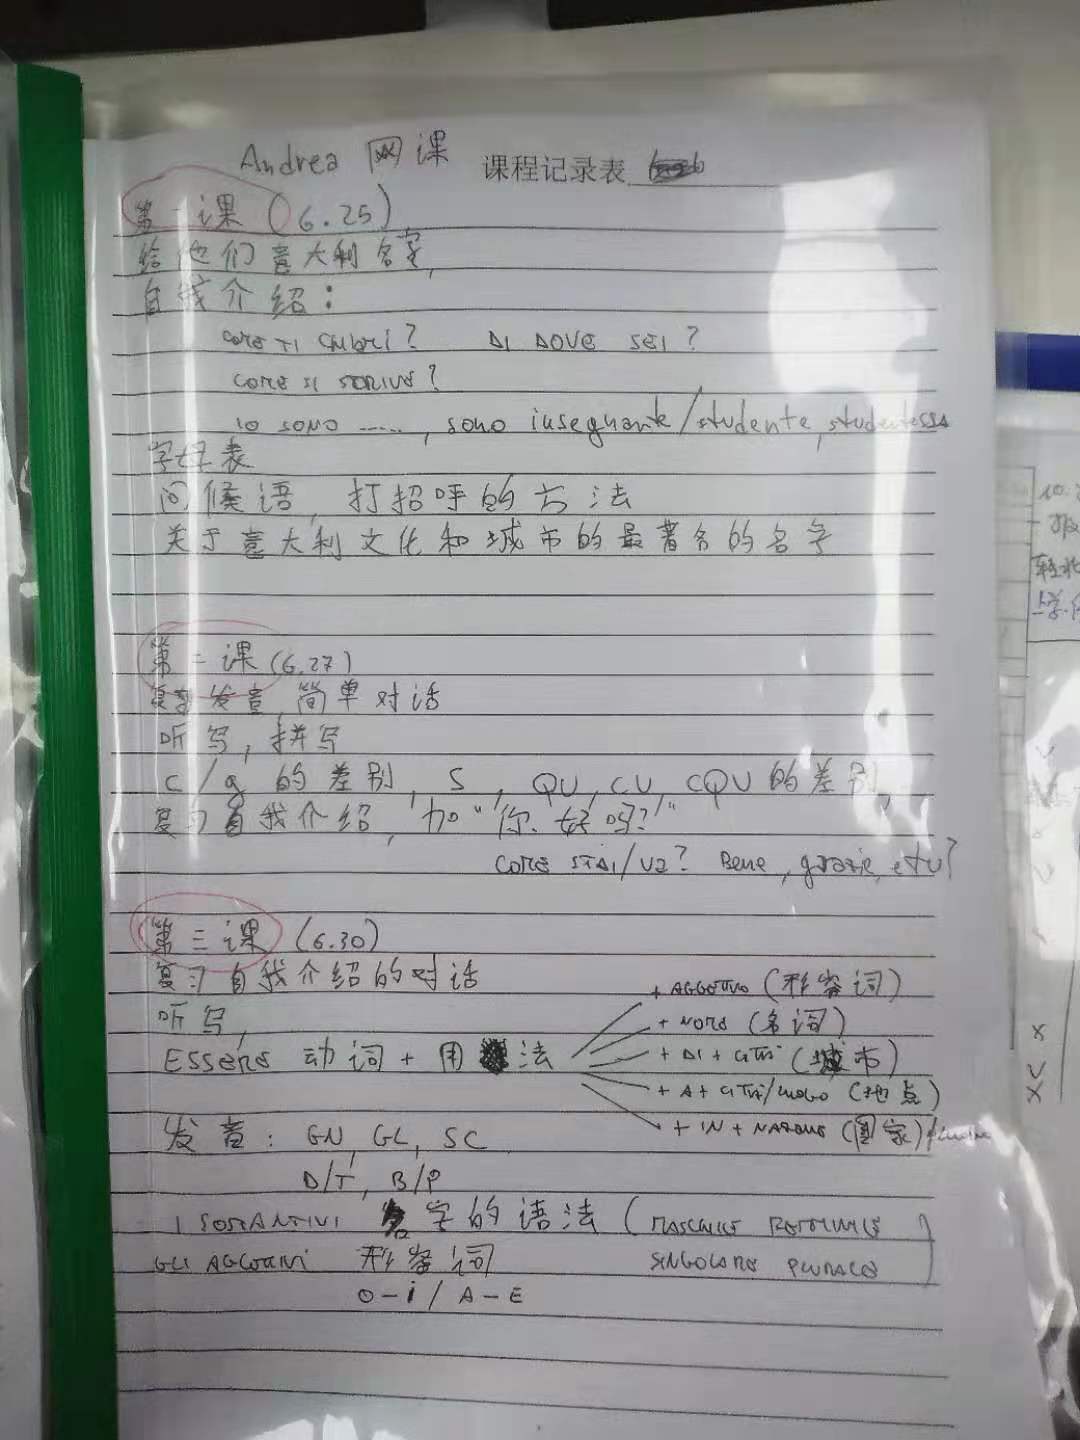 Andrea 网课 课程记录表
第一课 (6.25)
给他们意大利名字,
自我介绍:
COME TI CHIAMI? DI DOVE SEI?
COME SI SCRIVE?
IO SONO ......, sono insegnante/studente, studentessa
字母表
问候语, 打招呼的方法
关于意大利文化和城市的最著名的名字
第二课 (6.27)
复习发音 简单对话
听写, 拼写
C/g 的差别, S, QU, CU, CQU 的差别,
复习自我介绍, 加“你好吗?”
COME STAI/VA? Bene, grazie, e tu?
第三课 (6.30)
复习自我介绍的对话
听写,
+ AGGETTIVO (形容词)
+ NOME (名词)
ESSERE 动词 + 用法
+ DI + CITTÀ (城市)
+ A + CITTÀ/LUOGO (地点)
+ IN + NAZIONE (国家)
发音: GN, GL, SC
D/T, B/P
I SOSTANTIVI 名字的语法 (MASCHILE FEMMINILE
GLI AGGETTIVI 形容词 SINGOLARE PLURALE)
O-i / A-E